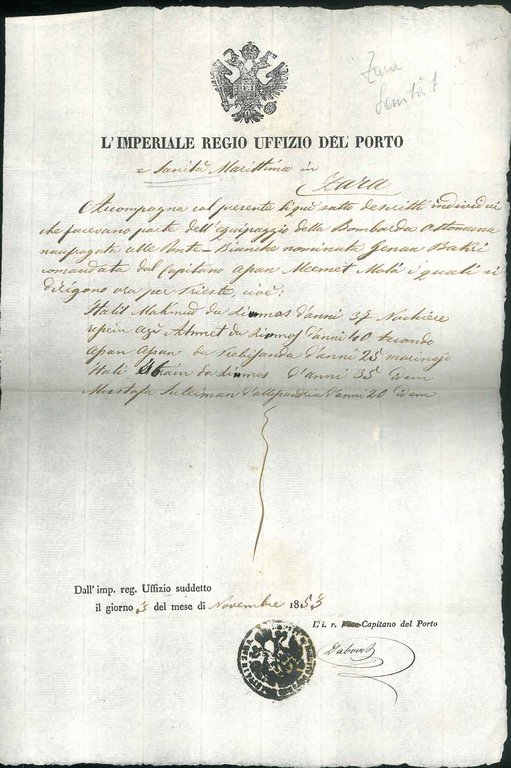 Zara
Sanität
L'IMPERIALE REGIO UFFIZIO DEL PORTO
e Sanità Marittima in
Zara
Accompagna col presente li quì sotto descritti individui
che facevano parte dell'equipaggio della Bombarda ottomana
naufragata alle Ponte-Bianche nominata
comandata dal Capitano apan Meemet Molà i quali si
dirigono ora per Trieste, cioè:
Halil Makmud da d'anni 37 Nochiere
Ahmet da d'anni 40 secondo
apan apan da d'anni 25 marinajo
Hali da d'anni 35 idem
Mustafa Suleiman d'allessandria d'anni 20 idem
Dall'imp. reg. Uffizio suddetto
il giorno 3 del mese di Novembre 1853
L'i. r. Vice-Capitano del Porto